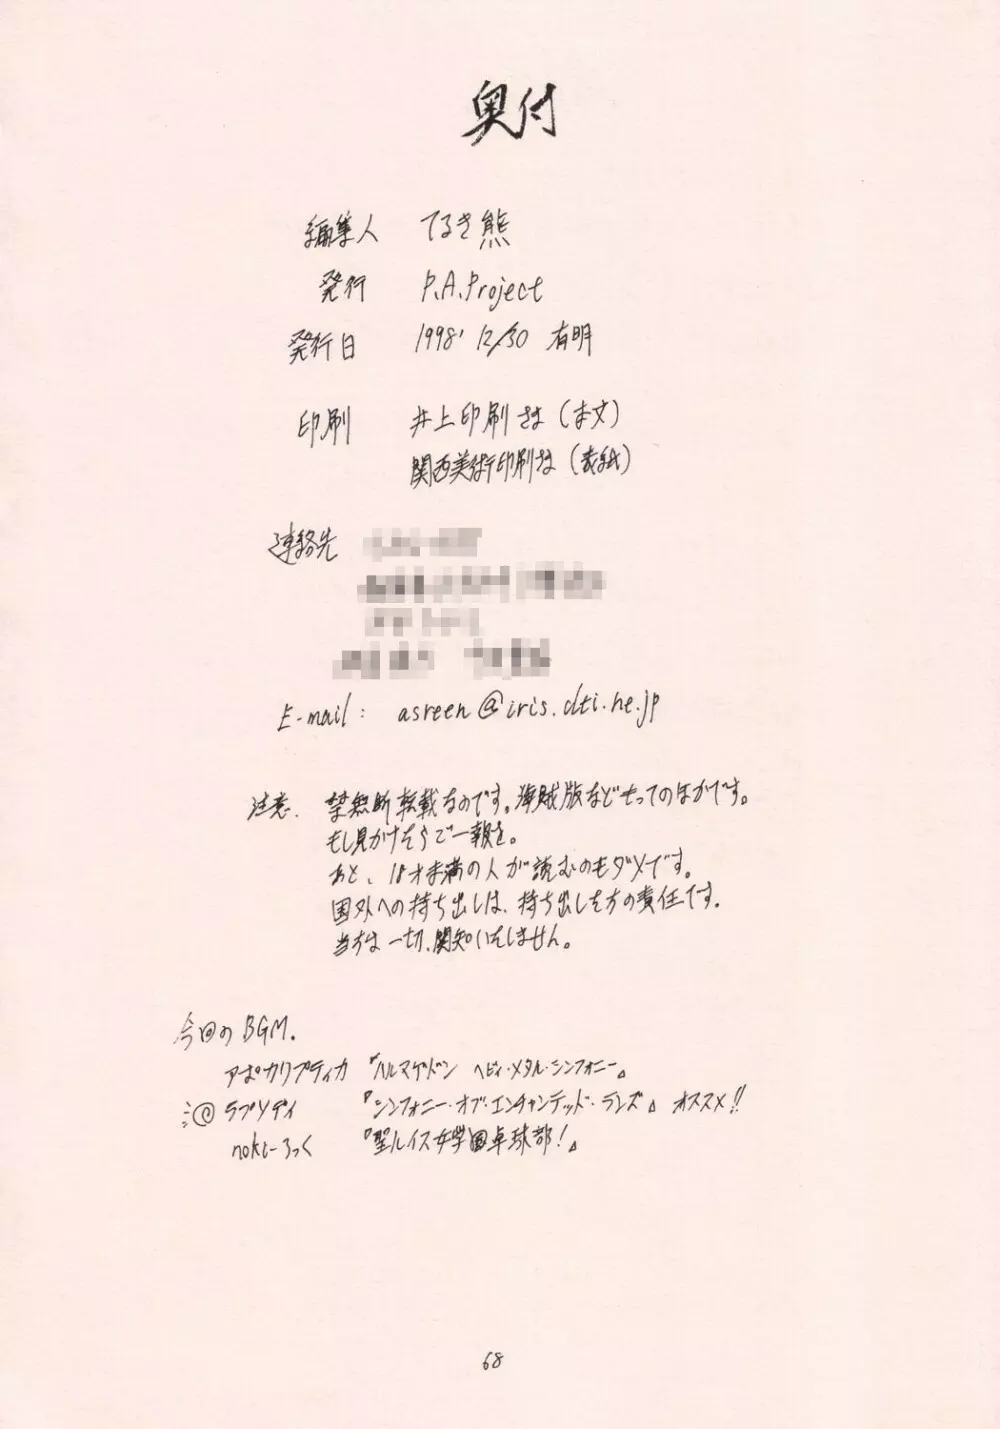 奥付
編集人 てるき熊
発行 P.A.Project
発行日 1998' 12/30 有明
印刷 井上印刷さま（本文）
関西美術印刷さま（表紙）
連絡先
E-mail: asreen@iris.dti.ne.jp
注意. 禁無断転載なのです。海賊版などもってのほかです。
もし見かけたらご一報を。
あと、18才未満の人が読むのもダメです。
国外への持ち出しは、持ち出した方の責任です。
当方は一切、関知いたしません。
今回のBGM.
アポカリプティカ 『ハルマゲドン ヘビィ・メタル・シンフォニー』
◎ラプソディ 『シンフォニー・オブ・エンチャンテッド・ランズ』 オススメ!!
nokiーろっく 『聖ルイス女学園卓球部!』
68